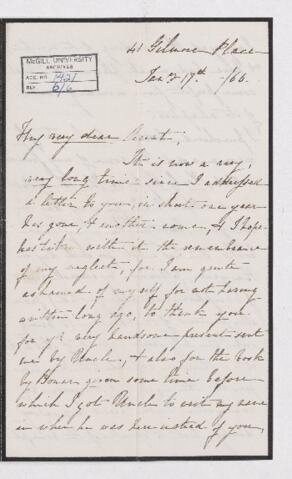 McGILL UNIVERSITY
ARCHIVES
ACC. NO. 1421
REF. 6/6
41 Gilmore Place
Jany 17th -/66.
My very dear Aunt,
It is now a very,
very long time since I addressed
a letter to you, in short one year
has gone, & another come, & I hope
has taken with it the remembrance
of my neglect, for I am quite
ashamed of myself for not having
written long ago, to thank you
for yr very handsome present sent
me by Uncle, & also for the book
by Bonar given some time before
which I got Uncle to write my name
in when he was here instead of you,